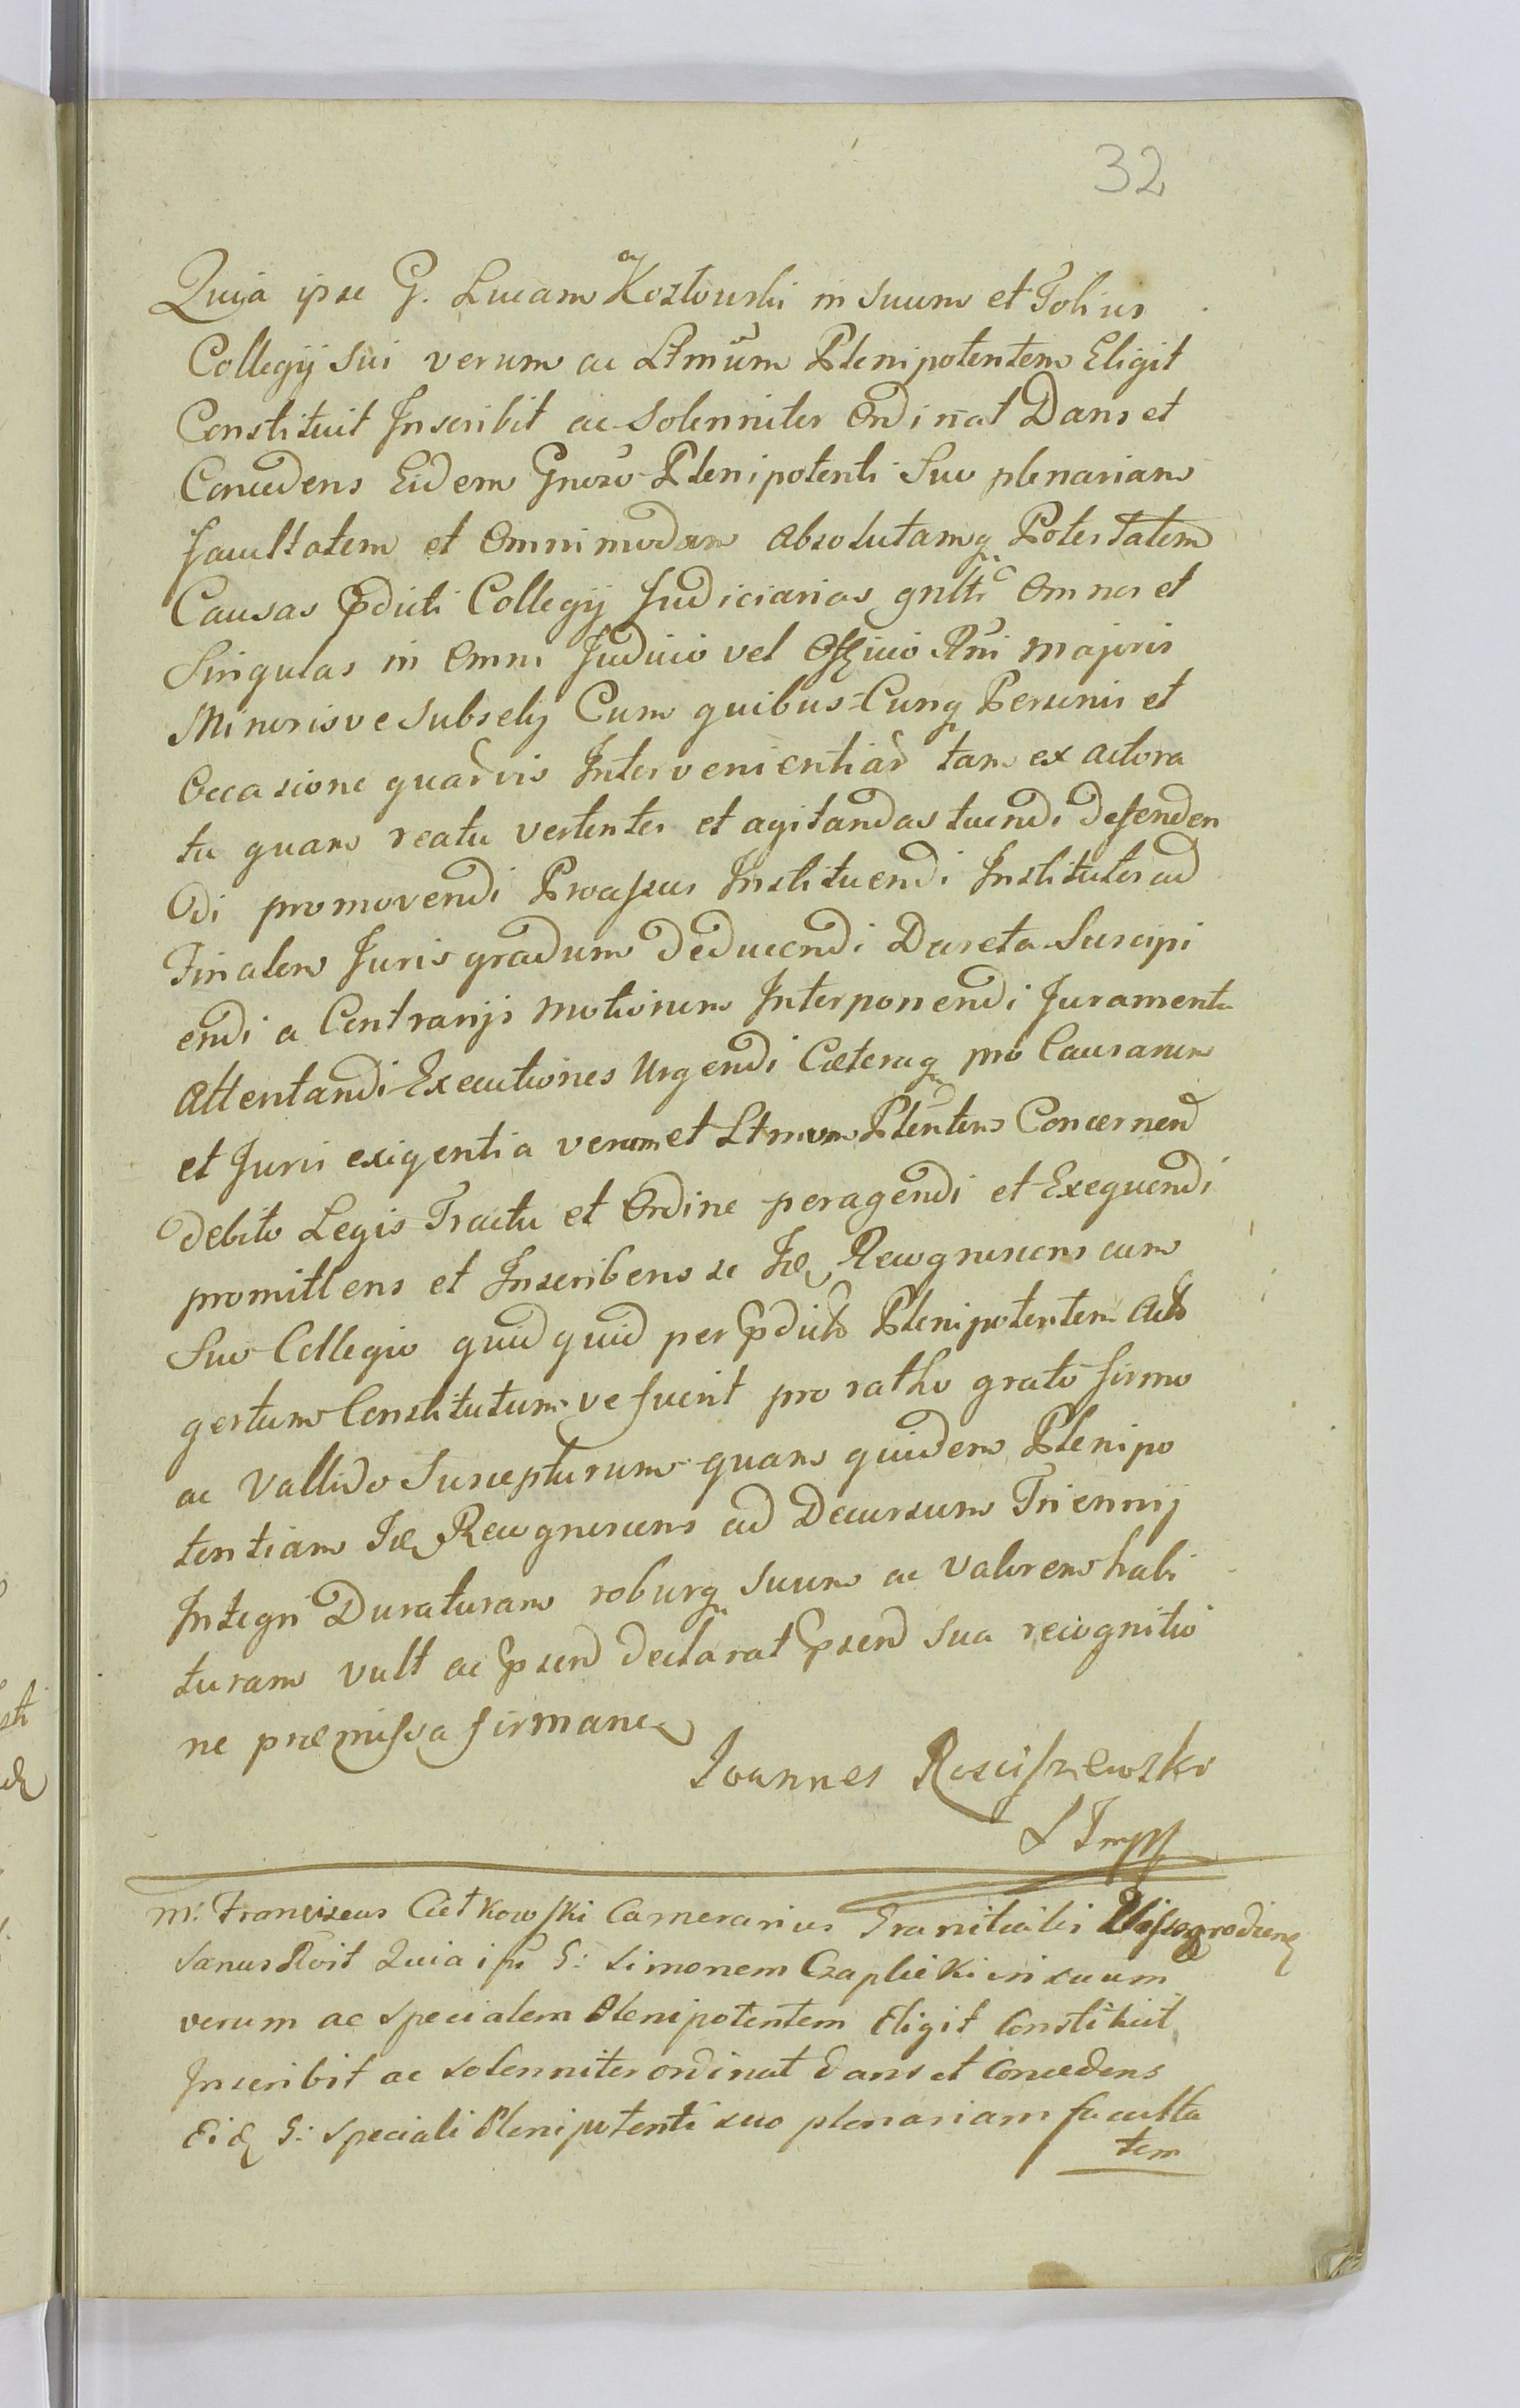 32
Quia ipse G. Lucam Kozłowski in suum et Totius
Collegij sui verum ac Ltmum Plenipotentem Eligit
Constituit Inscribit ac Solenniter Ordinat Dans et
Concedens Eidem Gneroso Plenipotenti Suo plenariam
facultatem et Omnimodam absolutamq Potestatem
Causas pdicti Collegij Judiciarias gnltr Omnes et
Singulas in Omni Judicio vel Officio Rni majoris
Minorisve Subselij Cum quibus-Cunq Personis et
Occasione quarvis Intervenientiar tam ex actora
tu quam reatu vertentes et agitandas tuendi defenden
di promovendi Processus Instituendi Institutos ad
Finalem Juris gradum deducendi Decreta Suscipi
endi a Contrarijs motionem Interponendi Juramenta
attentandi Executiones Urgendi Cæteraq pro Causarum
et Juris exigentia verum et Ltmum Pltentem Concernen
debito Legis Tractu et Ordine peragendi et Exequendi
promittens et Inscribens se Ide Recognoscens cum
Suo Collegio quidquid per pdictu Plenipotentem Actu
gestum Constitutumve fuerit pro ratho grato firmo
ac Vallido Suscepturum quam quidem Plenipo
tentiam Ide Recognoscens ad Decursum Triennij
Integri Duraturam roburq suum ac valorem habi
turam vult ac psen declarat psen sua recognitio
ne præmissa firmane
Joannes Rosciszewski
S J mpp
M. Franciszcus Ciełkowski Camerarius Granitialis Vissogrodien
sanus Rvit Quia ipse G: Simonem Czaplicki in suum
verum ac Specialem Plenipotentem Eligit Constituit
Inscribit ac solenniter ordinat Dans et Concedens
Eid G: Speciali Plenipotenti suo plenariam faculta
tem